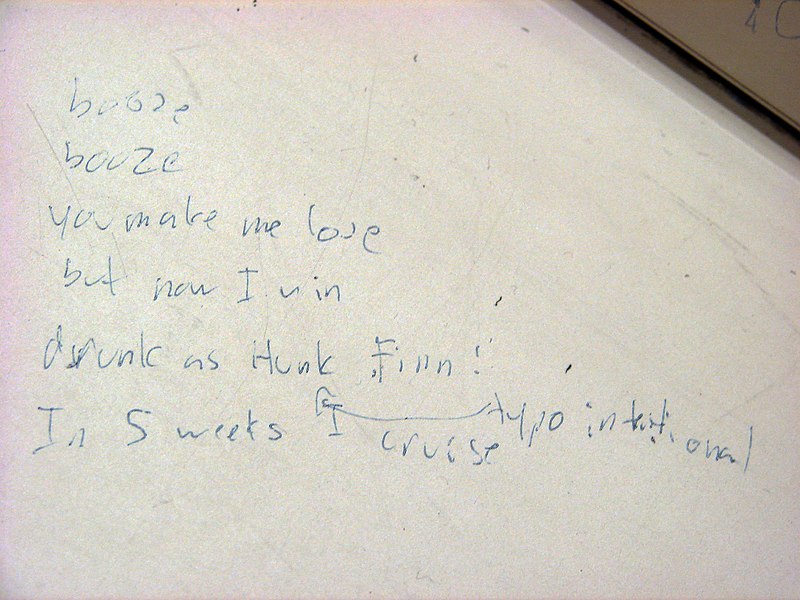 booze
booze
you make me lose
but now I win
drunk as Hunk Finn!
typo intentional
In 5 weeks I cruise